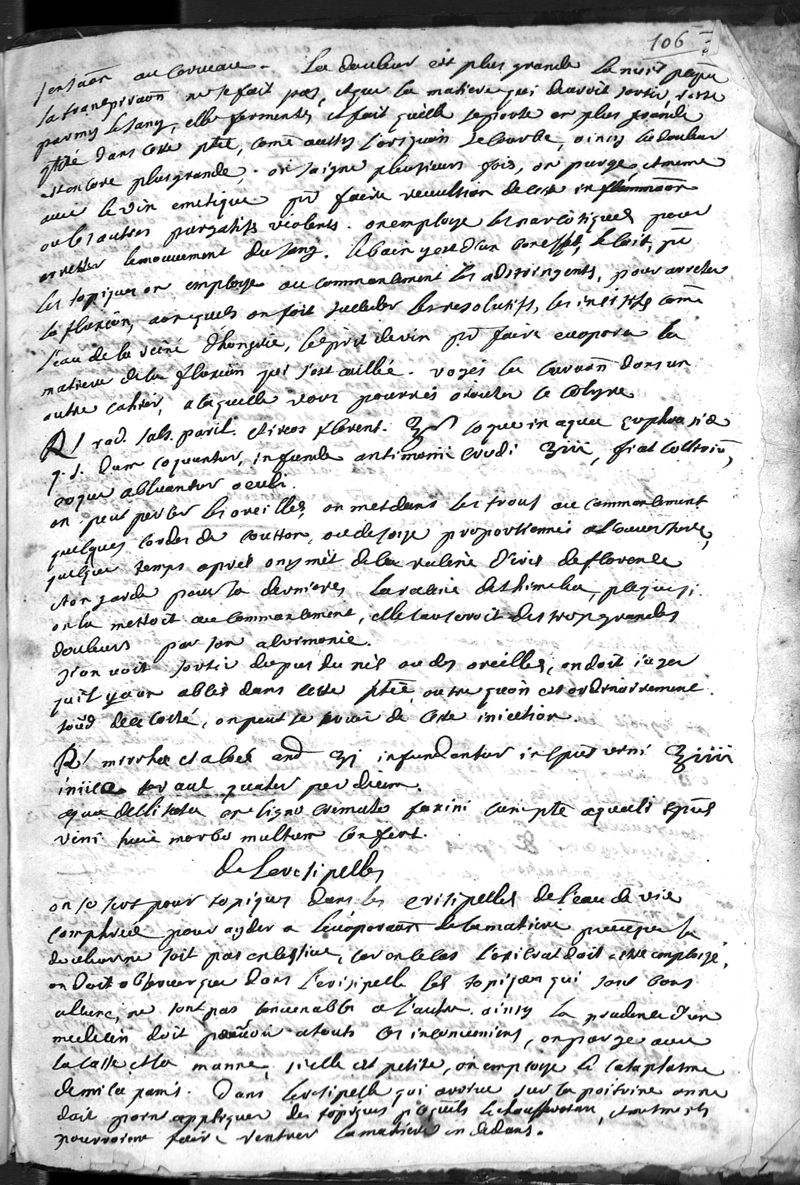 106
au Cerveau. La douleur est plus grande la nuit
la transpiration ne se fait pas, et que la matiere qui devroit sortir, reste
parmy le sang, elle fermente, et fait quelle se porte en plus grande
dans cette ptie, come aussy
est encore plus grande. on saigne plusieurs fois, on purge, et mesme
avec le vin emetique pr faire revulsion de cete inflammaon
ou les autres purgatifs violents. on employe les narcotiques pour
arrester le mouvement du sang. le bain y est d'un bon effet, le lait, pr
les topiques on employe au commancement les adstringents, pour arreter
la fluxion, auxquels on fait succeder les resolutifs, les incisifs come
l'eau de la reine d'hongrie, l'esprit de vin pr faire evaporer la
matiere de la fluxion qui s'est caillée. voyes la curaon dans un
autre cahier, a laquelle vous pourres ajouter le colyre
R/ rad. sals. paril. et ireos florent. coque in aqua euphrasiæ
q. s. dum coquuntur, infunde antimonii crudi ℥iii, fiat collirium,
quo abluantur oculi.
on peut percer les oreilles, on met dans les trous au commancement
quelques cordes de coutton, ou de soye proportionnés a l'ouverture,
quelque temps aprés on y met de la racine d'iris de florence
et on garde pour la derniere la racine de thimelea, p̅c̅e̅ que si
on la mettoit au commancement, elle causeroit des trop grandes
douleurs par son acrimonie.
si on voit sortir du pus du nés ou des oreilles, on doit juger
qu'il y a un abscés dans cette ptie, outre qu'on est ordinairement
sourd de ce costé, on peut se servir de cete iniection.
R/ mirrhæ et aloes and ʒi infundantur in spirit. vini ℥iiii
iniice ter aut quater per diem.
aqua destillata en ligno fraxini cum pte æquali spiritus
vini huic morbo multum confert.
de L'eresipelles
on se sert pour topiques dans les erisipelles de l'eau de vie
camphrée pour ayder a l'evaporaon de la matiere pourveu que la
douleur ne soit pas excessive, car en ce cas l'oxicrat doit estre employé,
on doit observer que dans l'erisipelle les topiques qui sont bons
a l'une, ne sont pas convenables a l'autre. ainsy la prudence d'un
medecin doit prevoir a touts ces inconvenients, on purge avec
la casse et la manne, si elle est petite, on employe le cataplasme
de mica panis. Dans l'eresipelle qui arrive sur la poitrine on ne
doit point appliquer de topiques
pourroient faire rentrer la matiere en dedans.